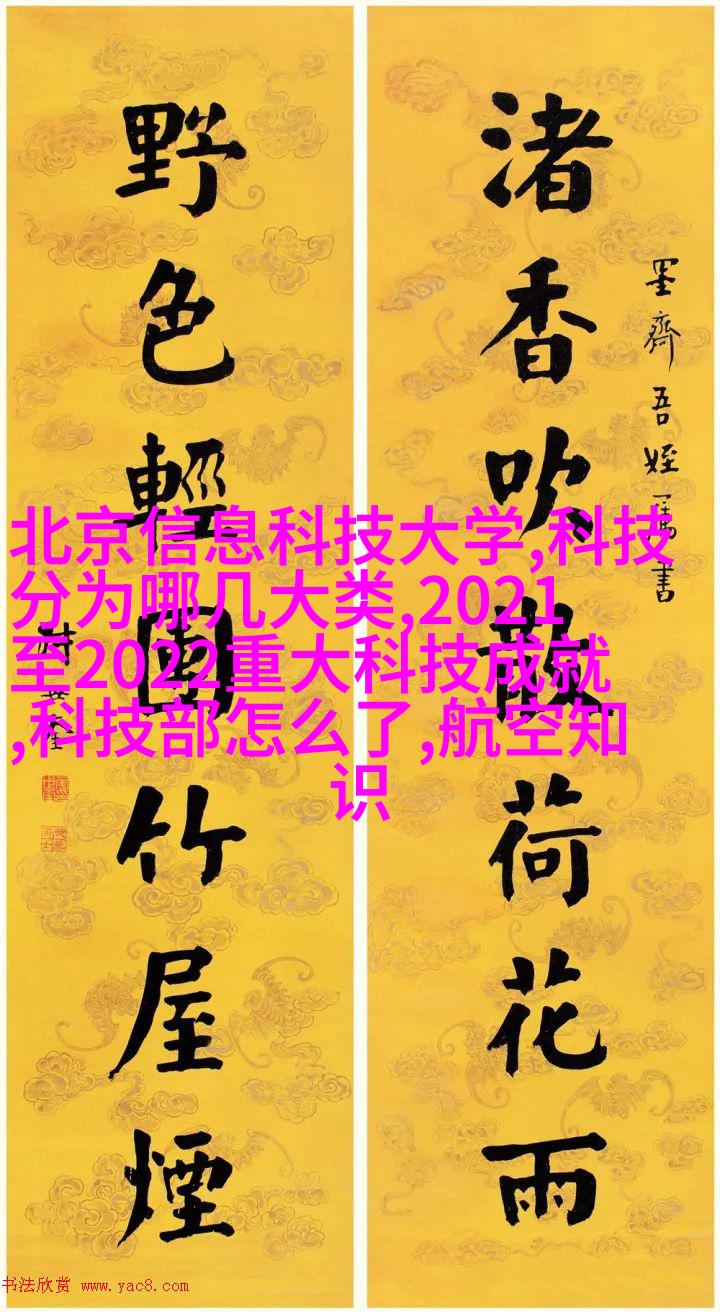 渚香吹散荷花雨
墨齊吾姪属書
野色輕團竹屋煙
北京信息科技大学,科技
分为哪几大类,2021
至2022重大科技成就
,科技部怎么了,航空知
识
书法欣赏 www.yac8.com